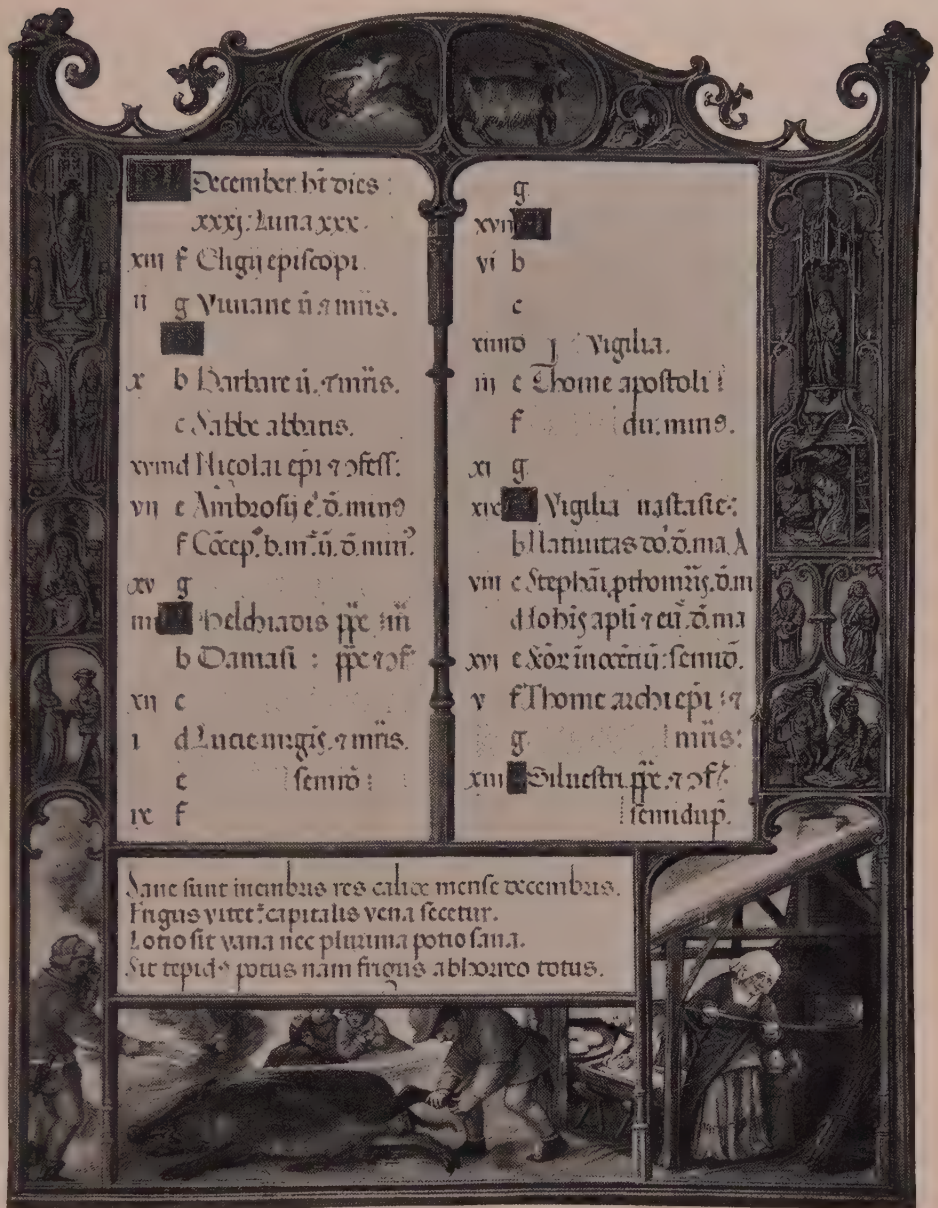 December ht dies :
xxxj: Luna xxx.
xiii f Eligij episcopi.
ii g Viuiane ũ. ⁊ mr̃is.
x b Barbare ũ. ⁊ mr̃is.
c Sabbe abbatis.
xviii d Nicolai ep̃i ⁊ ꝯfess:
vii e Ambrosij e. d̃. min⁹
f Cõcep. b. m. ũ. d̃. min⁹
xv g
iiii Melchiadis pp̃e
b Damasi : pp̃e ⁊ ꝯf
xii c
i d Lucie uirgis. ⁊ mr̃is.
e semid :
ix f
g
xvii
vi b
c
xiiii d j Vigilia.
iii e Thome apostoli :
f du: mins.
xi g
xix Vigilia nastasie:
b Natiuitas dõ. d̃. ma
viii c Stephãi, pthomr̃is. d̃. m
d Iohis apl̃i ⁊ eũ. d̃. ma
xvi e innocẽtiũ: semid̃.
v f Thome archiep̃i : ⁊
g mr̃is:
xiii Siluestri. pp̃e. ⁊ ꝯf
semidup̃.
Sane sunt membris res calide mense decembris.
Frigus vitet: capitalis vena secetur.
Lotio sit vana nec plurima potio sana.
Sit tepid⁹ potus nam frigus abhorreo totus.